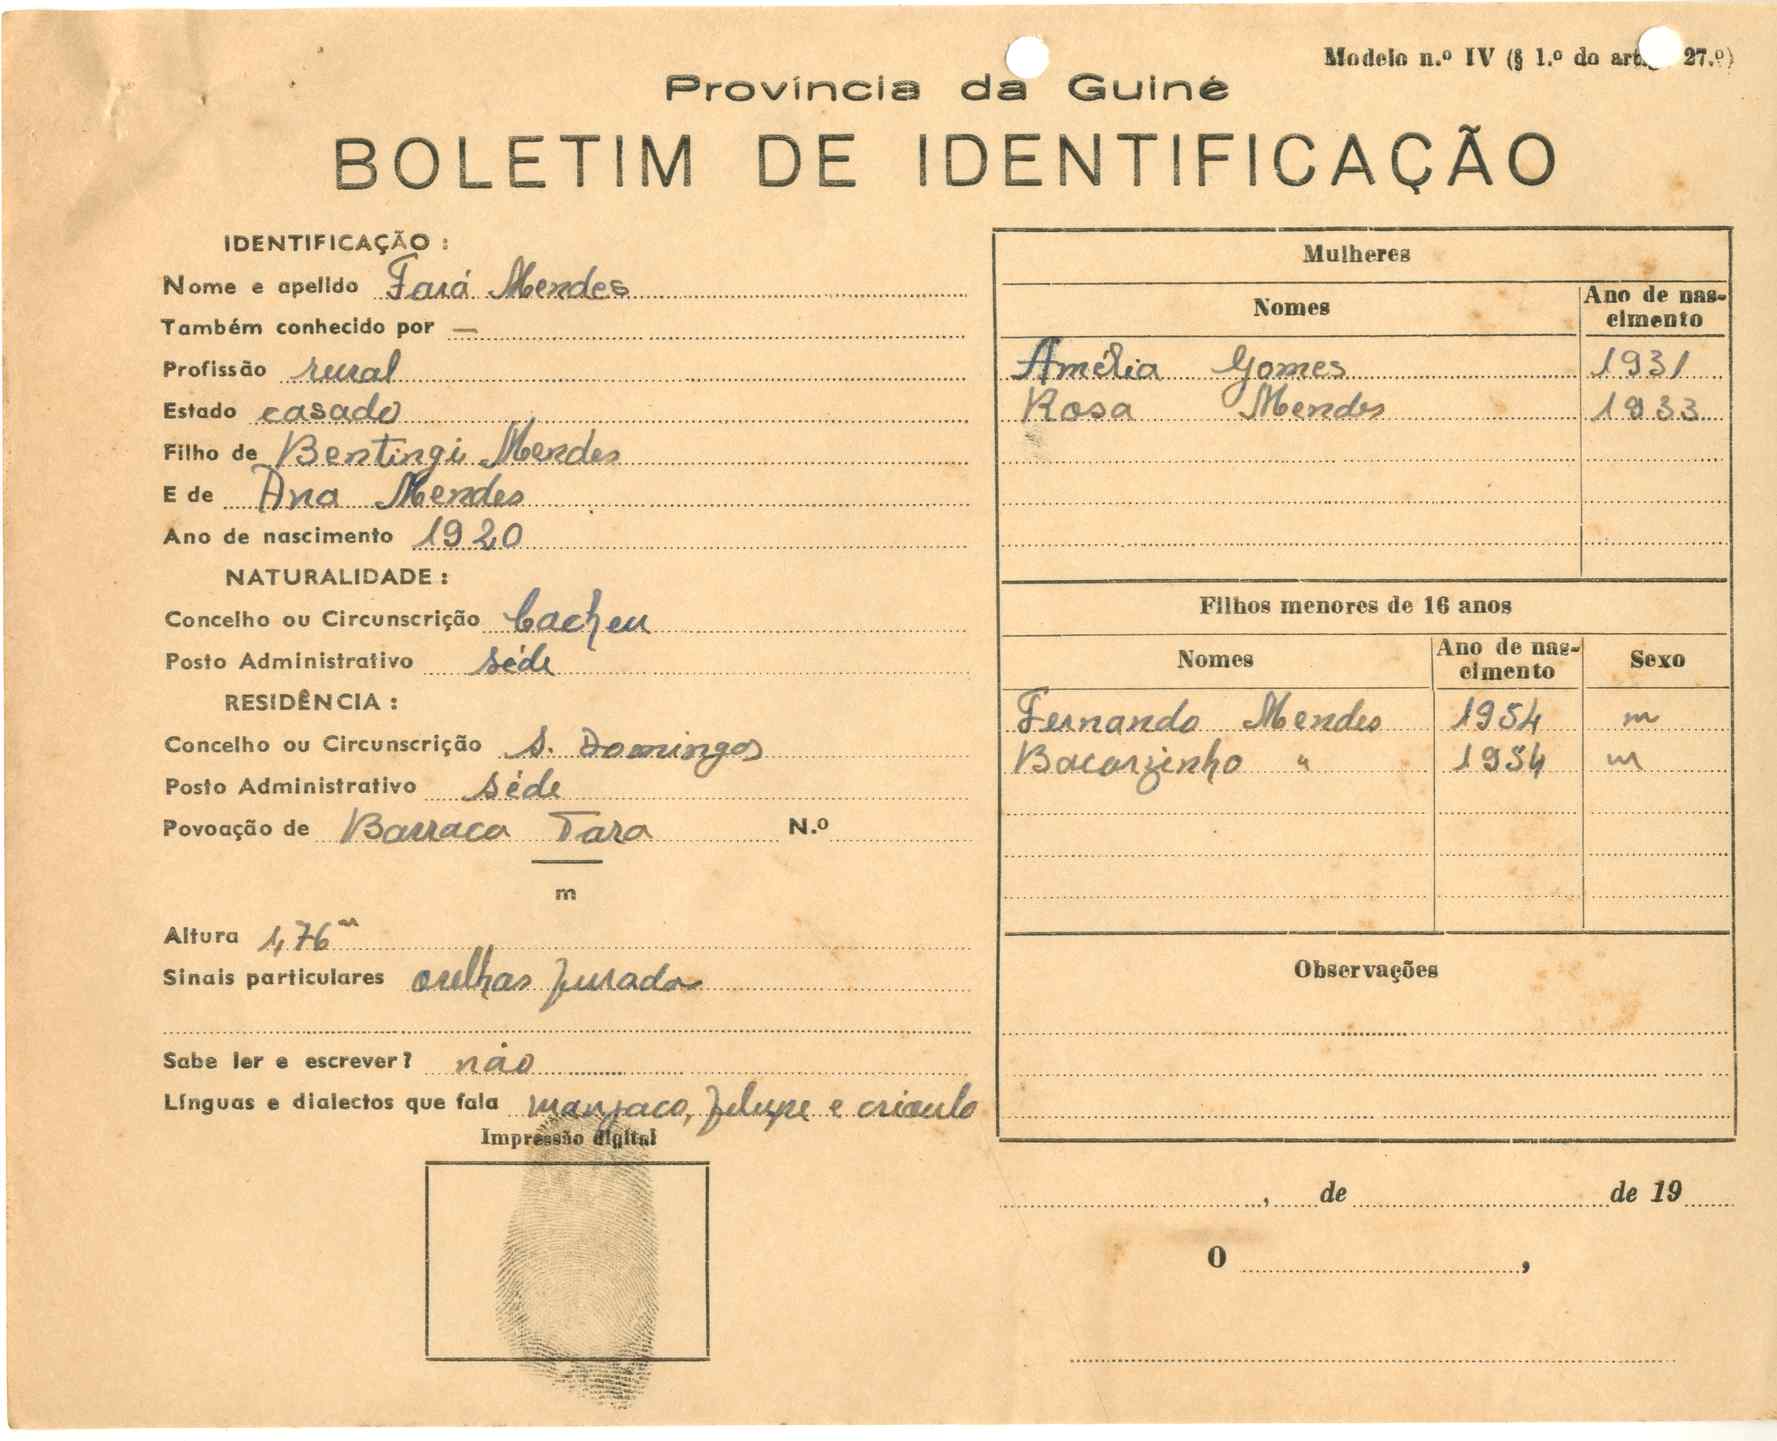 Modelo n.º IV (§ 1.º do art. 27.º)
Província da Guiné
BOLETIM DE IDENTIFICAÇÃO
IDENTIFICAÇÃO :
Nome e apelido Fará Mendes
Também conhecido por —
Profissão rural
Estado casado
Filho de Bentingi Mendes
E de Ana Mendes
Ano de nascimento 1920
NATURALIDADE :
Concelho ou Circunscrição Cacheu
Posto Administrativo séde
RESIDÊNCIA :
Concelho ou Circunscrição S. Domingos
Posto Administrativo séde
Povoação de Barraca Tara N.º
m
Altura 1,76m
Sinais particulares orelhas furadas
Sabe ler e escrever? não
Línguas e dialectos que fala manjaco, felupe e crioulo
Impressão digital
Mulheres
Nomes Ano de nas-
cimento
Amélia Gomes 1931
Rosa Mendes 1933
Filhos menores de 16 anos
Nomes Ano de nas- Sexo
cimento
Fernando Mendes 1954 m
Bacarzinho " 1954 m
Observações
, de de 19
O ,